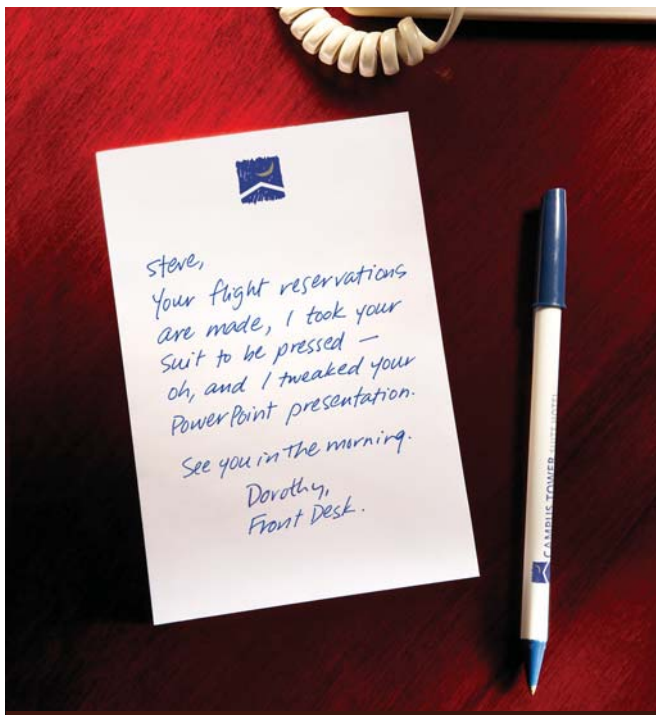 Steve,
Your flight reservations
are made, I took your
suit to be pressed —
oh, and I tweaked your
PowerPoint presentation.
See you in the morning.
Dorothy,
Front Desk.
CAMPUS TOWER SUITE HOTEL